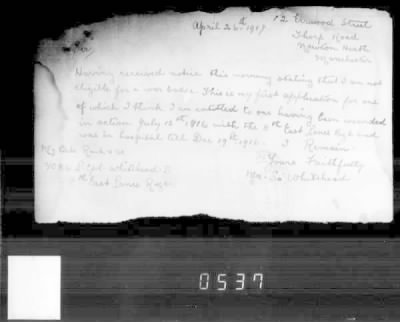 12 Elmwood Street
April 26th 1917
Thorp Road
Newton Heath
Manchester
Sir,
Having received notice this morning stating that I am not
eligible for a war badge. This is my first application for one
of which I think I am entitled to one having been wounded
in action July 15th 1916 with the 8th East Lancs Rgt and
was in hospital till Dec 19th 1916. I Remain
Yours Faithfully
My late Rank was
L/Cpl Whitehead
th East Lancs Regt
Whitehead
0537